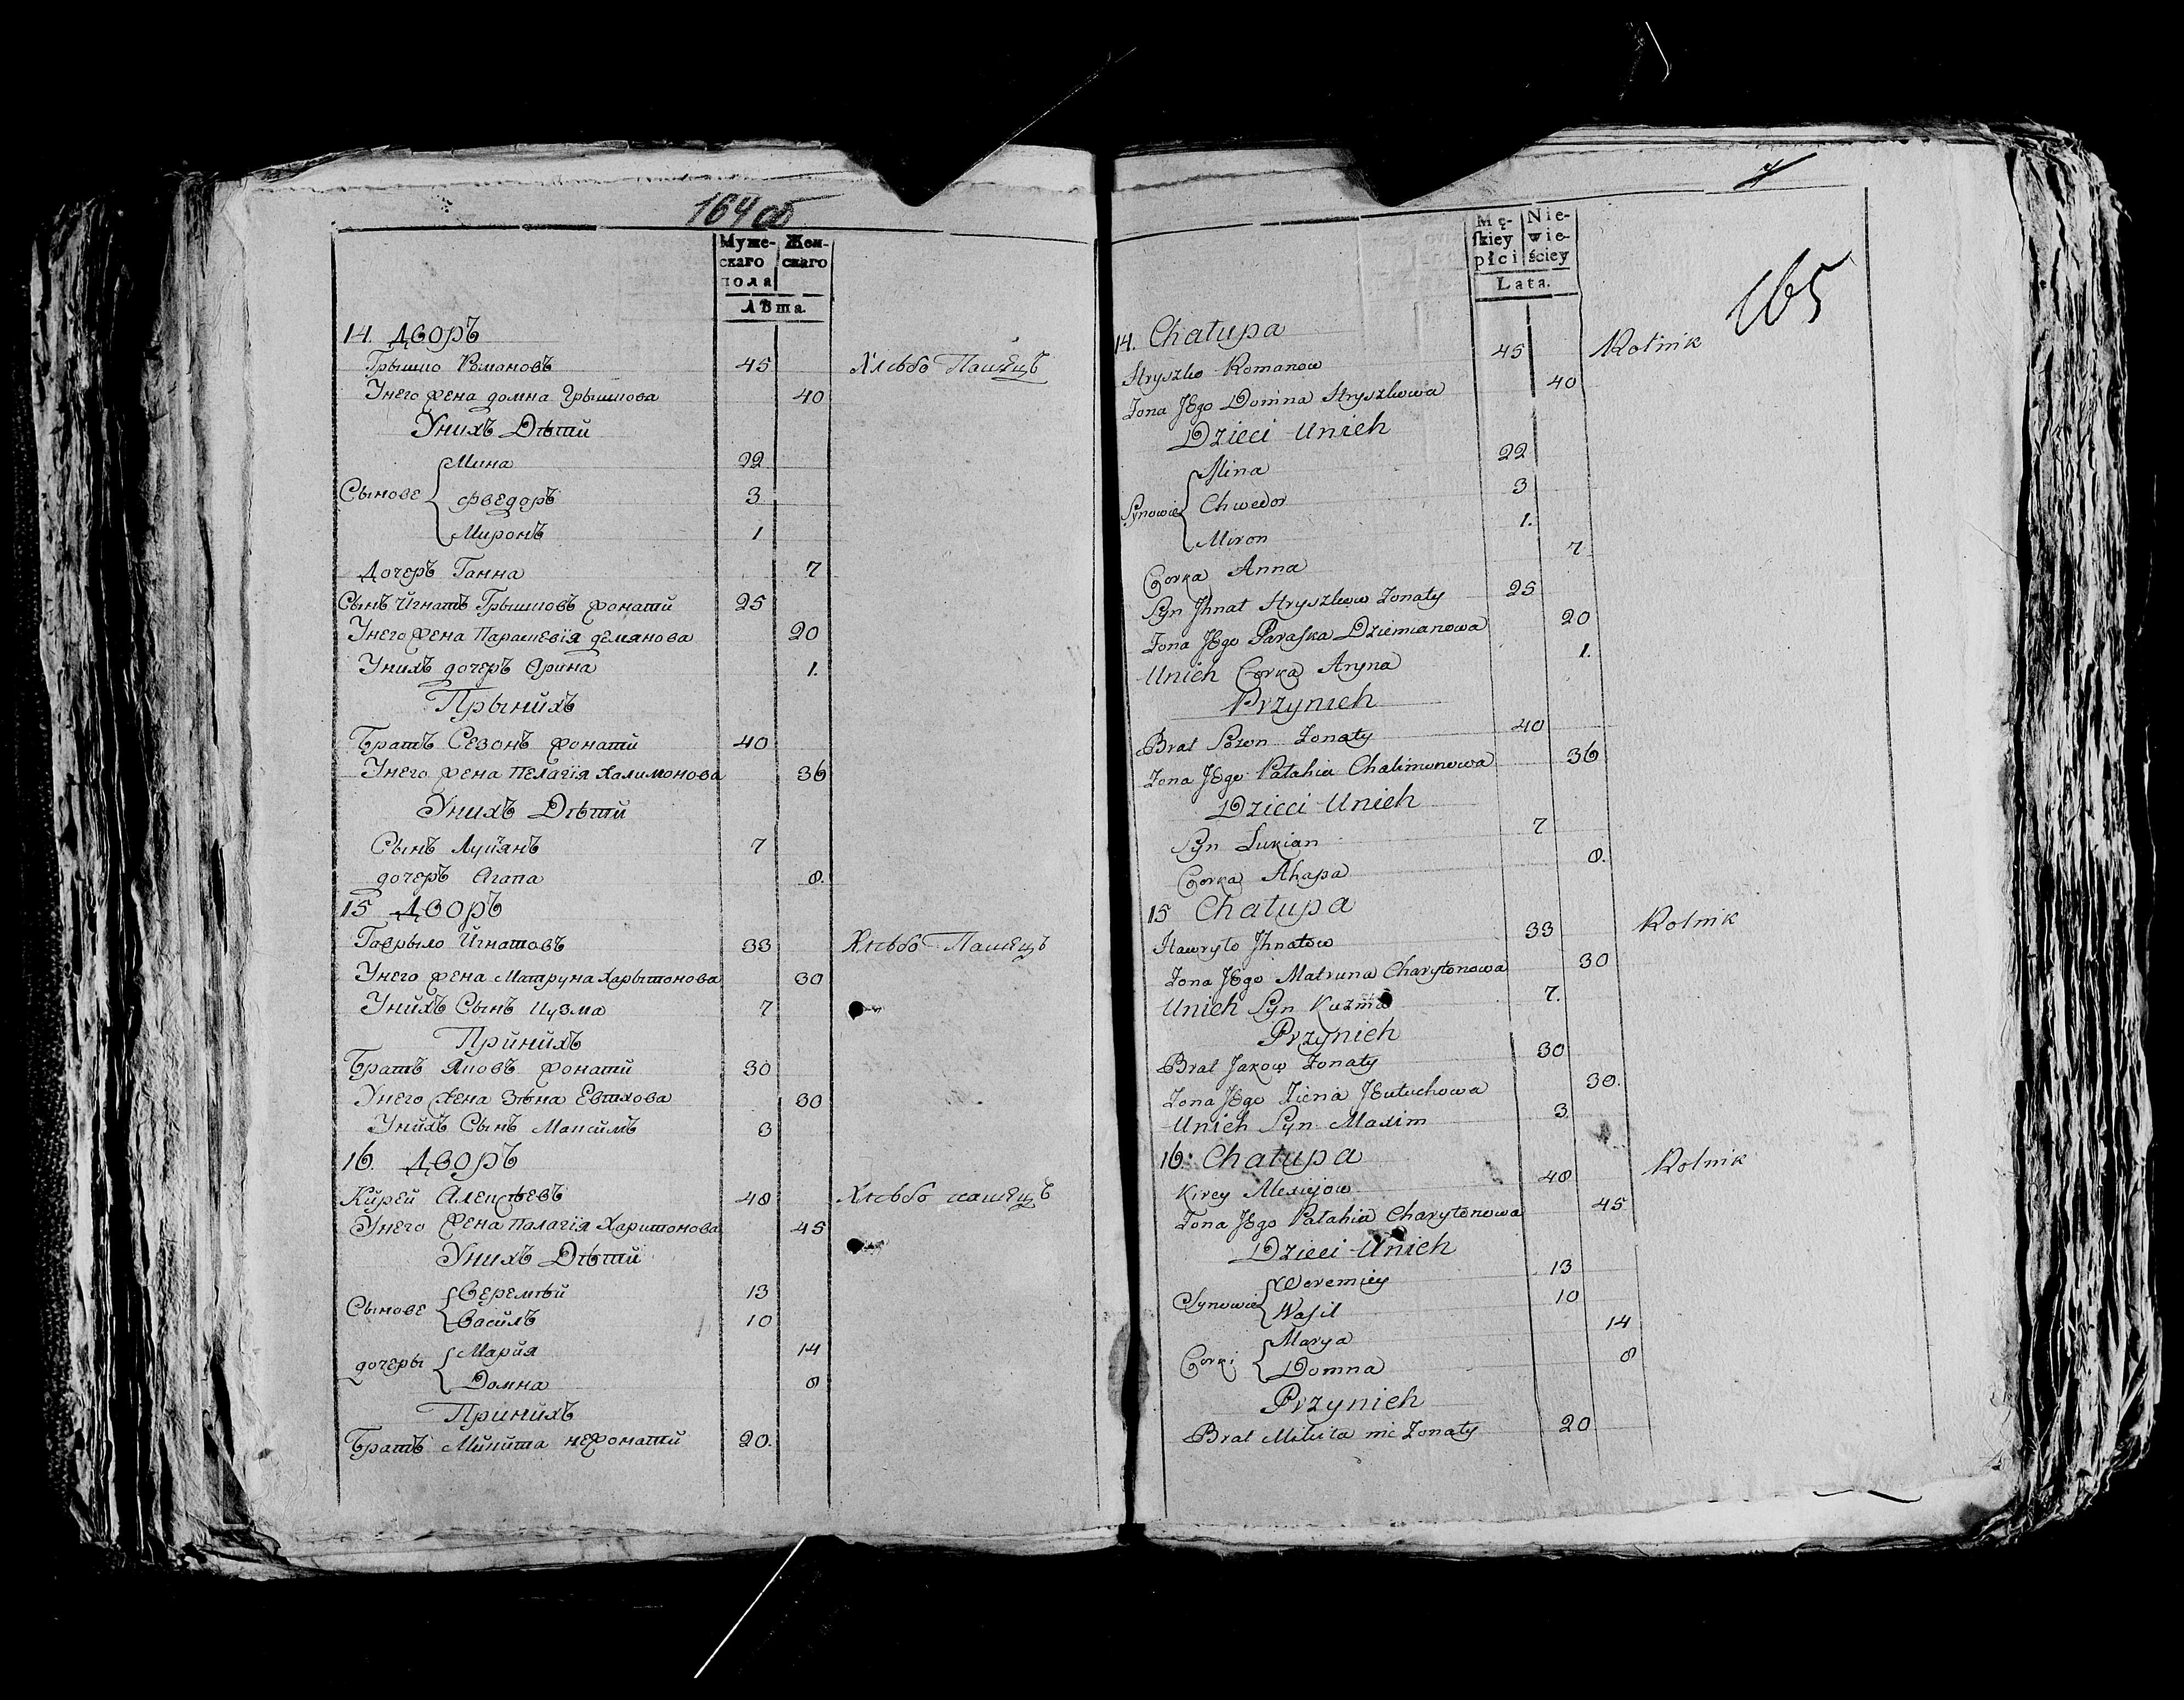 164 об
Муже-
скаго
пола
Жен-
скаго
Лѣта.
14. Дворъ
Грышко Романовъ 45 Хлѣбо Пашецъ
Унего жена домна Грышкова 40
Унихъ Дѣтй
Сынове
Мина 22
Фведоръ 3
Миронъ 1
Дочеръ Ганна 7
Сынъ Йгнатъ Грышковъ жонатй 25
Унего жена Параскевїя демянова 20
Унихъ дочеръ Орина 1.
Прынйхъ
Братъ Сезонъ жонатй 40
Унего жена Пелагїя Халимонова 36
Унихъ Дѣтй
Сынъ Лукйянъ 7
дочеръ Агапа 8.
15 Дворъ
Гаврыло Йгнатовъ 33 Хлѣбо Пашецъ
Унего жена Матруна Харытонова 30
Унйхъ Сынъ Кузма 7
Прйнйхъ
Братъ Яковъ жонатй 30
Унего жена Зѣна Евтхова 30
Унйхъ Сынъ Максймъ 3
16. Дворъ
Кйрей Алексѣевъ 48 Хлѣбо пашецъ
Унего жена палагїя Харитонова 45
Унихъ Дѣтй
Сынове
Веремѣй 13
Васйлъ 10
дочеры
Марйя 14
Домна 8
Принйхъ
Братъ Мйкита нежонатй 20.
7
165
Mę-
ſkiey
płci
Nie-
wie-
ściey
Lata.
14. Chałupa
Hryszko Romanow 45 Rolnik
Zona JEgo Domna Hryszkowa 40
Dzieci Unich
Synowie
Mina 22
Chwedor 3
Miron 1.
Corka Anna 7
Syn Jhnat Hryszkow Zonaty 25
Zona JEgo Paraſka Dziemianowa 20
Unich Corka Aryna 1.
Przynich
Brat Sozon Zonaty 40
Zona JEgo Pałahia Chalimonowa 36
Dzieci Unich
Syn Lukian 7
Corka Ahapa 8.
15 Chałupa
Hawryło Jhnatow 33 Rolnik
Zona JEgo Matruna Charytonowa 30
Unich Syn Kuzma 7.
Przynich
Brat Jakow Zonaty 30
Zona JEgo Ziena JEwtuchowa 30.
Unich Syn Maxim 3
16. Chałupa
Kirey Alexiejow 48 Rolnik
Zona JEgo Pałahia Charytonowa 45
Dzieci Unich
Synowie
Weremiey 13
Waſil 10
Corki
Marya 14
Domna 8
Przynich
Brat Mikita nie Zonaty 20